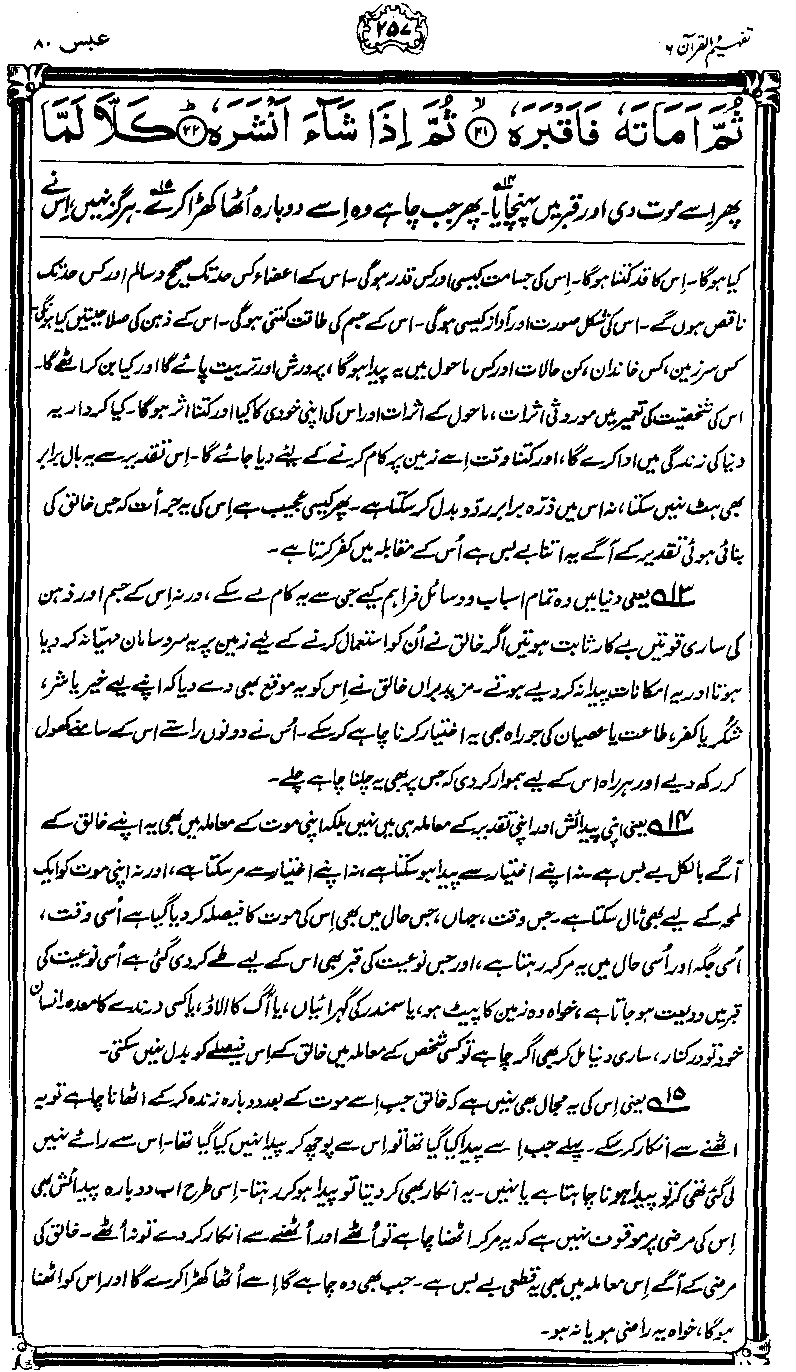 تفہیم القرآن ۶
۲۵۷
عبس ۸۰
ثُمَّ اَمَاتَهٗ فَاَقْبَرَهٗ ۙ﴿۲۱﴾ ثُمَّ اِذَا شَآءَ اَنْشَرَهٗ ؕ﴿۲۲﴾ كَلَّا لَمَّا
پھر اِسے موت دی اور قبر میں پہنچایا۱۴۔ پھر جب چاہے وہ اِسے دوبارہ اُٹھا کھڑا کرے۱۵۔ ہرگز نہیں، اِس نے
کیا ہوگا۔ اِس کا قد کتنا ہوگا۔ اِس کی جسامت کیسی اور کس قدر ہوگی۔ اس کے اعضاء کس حد تک صحیح و سالم اور کس حد تک
ناقص ہوں گے۔ اس کی شکل صورت اور آواز کیسی ہوگی۔ اس کے جسم کی طاقت کتنی ہوگی۔ اس کے ذہن کی صلاحیتیں کیا ہونگی۔
کس سرزمین، کس خاندان، کن حالات اور کس ماحول میں یہ پیدا ہوگا، پرورش اور تربیت پائے گا اور کیا بن کر اٹھے گا۔
اس کی شخصیت کی تعمیر میں موروثی اثرات، ماحول کے اثرات اور اس کی اپنی خودی کا کیا اور کتنا اثر ہوگا۔ کیا کردار یہ
دنیا کی زندگی میں ادا کرے گا، اور کتنا وقت اِسے زمین پر کام کرنے کے لیے دیا جائے گا۔ اِس تقدیر سے یہ بال برابر
بھی ہٹ نہیں سکتا، نہ اس میں ذرّہ برابر ردّ و بدل کر سکتا ہے۔ پھر کیسی عجیب ہے اِس کی یہ جرأت کہ جس خالق کی
بنائی ہوئی تقدیر کے آگے یہ اتنا بے بس ہے اُس کے مقابلہ میں کفر کرتا ہے۔
۱۳ یعنی دنیا میں وہ تمام اسباب و وسائل فراہم کیے جن سے یہ کام لے سکے، ورنہ اِس کے جسم اور ذہن
کی ساری قوتیں بے کار ثابت ہوتیں اگر خالق نے اُن کو استعمال کرنے کے لیے زمین پر یہ سر و سامان مہیّا نہ کر دیا
ہوتا اور یہ امکانات پیدا نہ کر دیے ہوتے۔ مزید براں خالق نے اِس کو یہ موقع بھی دے دیا کہ اپنے لیے خیر یا شر،
شکر یا کفر، طاعت یا عصیان کی جو راہ بھی یہ اختیار کرنا چاہے کر سکے۔ اُس نے دونوں راستے اس کے سامنے کھول
کر رکھ دیے اور ہر راہ اس کے لیے ہموار کر دی کہ جس پر بھی یہ چلنا چاہے چلے۔
۱۴ یعنی اپنی پیدائش اور اپنی تقدیر کے معاملہ ہی میں نہیں بلکہ اپنی موت کے معاملہ میں بھی یہ اپنے خالق کے
آگے بالکل بے بس ہے۔ نہ اپنے اختیار سے پیدا ہو سکتا ہے، نہ اپنے اختیار سے مر سکتا ہے، اور نہ اپنی موت کو ایک
لمحہ کے لیے بھی ٹال سکتا ہے۔ جس وقت، جہاں، جس حال میں بھی اِس کی موت کا فیصلہ کر دیا گیا ہے اُسی وقت،
اُسی جگہ اور اُسی حال میں یہ مر کر رہتا ہے، اور جس نوعیت کی قبر بھی اس کے لیے طے کر دی گئی ہے اُسی نوعیت کی
قبر میں ودیعت ہو جاتا ہے، خواہ وہ زمین کا پیٹ ہو، یا سمندر کی گہرائیاں، یا آگ کا الاؤ، یا کسی درندے کا معدہ۔ انسان
خود تو درکنار، ساری دنیا مل کر بھی اگر چاہے تو کسی شخص کے معاملہ میں خالق کے اِس فیصلے کو بدل نہیں سکتی۔
۱۵ یعنی اِس کی یہ مجال بھی نہیں ہے کہ خالق جب اِسے موت کے بعد دوبارہ زندہ کر کے اٹھانا چاہے تو یہ
اٹھنے سے انکار کر سکے۔ پہلے جب اِسے پیدا کیا گیا تھا تو اِس سے پوچھ کر پیدا نہیں کیا گیا تھا۔ اِس سے رائے نہیں
لی گئی تھی کہ تو پیدا ہونا چاہتا ہے یا نہیں۔ یہ انکار بھی کر دیتا تو پیدا ہو کر رہتا۔ اِسی طرح اب دوبارہ پیدائش بھی
اِس کی مرضی پر موقوف نہیں ہے کہ یہ مر کر اٹھنا چاہے تو اُٹھے اور اُٹھنے سے انکار کر دے تو نہ اُٹھے۔ خالق کی
مرضی کے آگے اِس معاملہ میں بھی یہ قطعی بے بس ہے۔ جب بھی وہ چاہے گا اِسے اُٹھا کھڑا کرے گا اور اِس کو اٹھنا
ہوگا، خواہ یہ راضی ہو یا نہ ہو۔